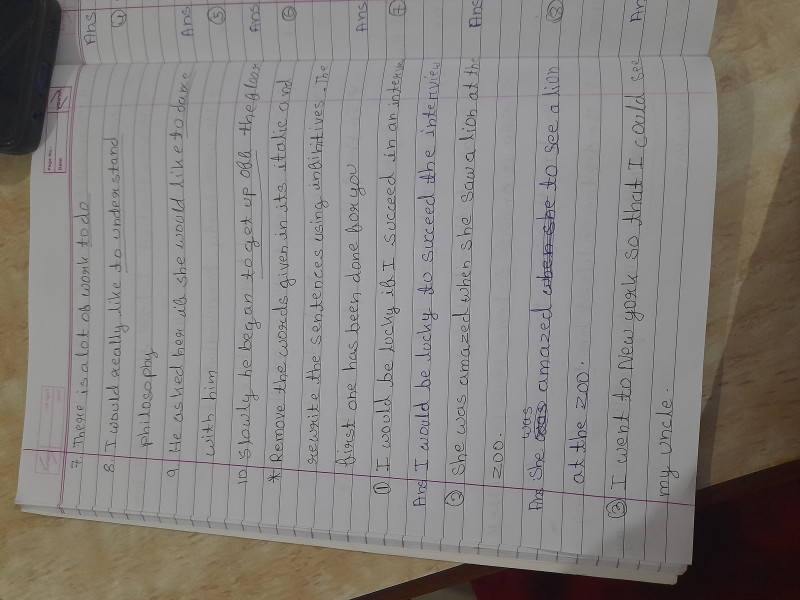 7. There is a lot of work to do
8. I would really like to understand
philosophy
9 He asked her if she would like to dance
with him
10 Slowly he began to get up off the floor
* Remove the words given in its italic and
rewrite the sentences using infinitives. The
first one has been done for you
① I would be lucky if I succeed in an interview
Ans I would be lucky to succeed the interview
② She was amazed when she saw a lion at the
zoo.
Ans She was amazed when she to see a lion
at the zoo.
③ I went to New york so that I could see
my uncle.
Ans
④
Ans
⑤
Ans
⑥
Ans
⑦
Ans
⑧
Ans